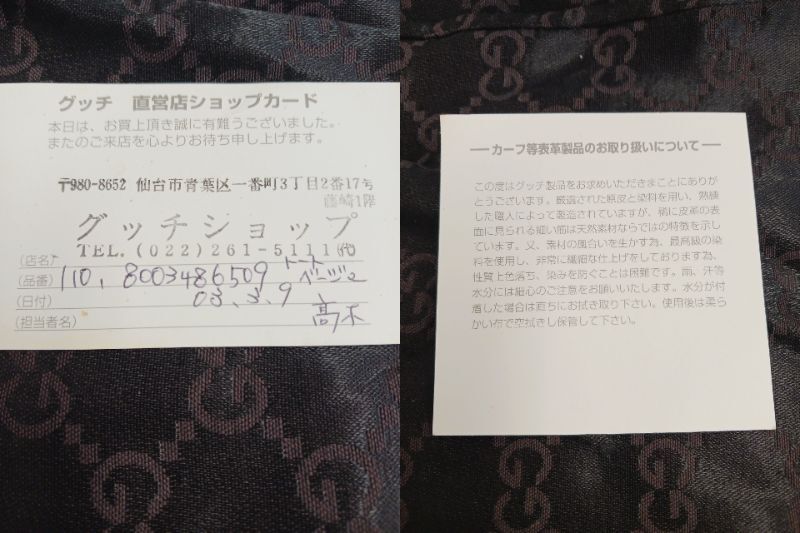 グッチ 直営店ショップカード
本日は、お買上頂き誠に有難うございました。
またのご来店を心よりお待ち申し上げます。
〒980-8652 仙台市青葉区一番町3丁目2番17号
藤崎1階
グッチショップ
TEL.(022)261-5111(代)
(店名)
(品番) 110, 8003486509 トート ベージュ
(日付) 03.3.9
(担当者名) 高禾
カーフ等表革製品のお取り扱いについて
この度はグッチ製品をお求めいただきまことにありが
とうございます。厳選された原皮と染料を用い、熟練
した職人によって製造されていますが、稀に皮革の表
面に見られる細い筋は天然素材ならではの特徴を示し
ています。又、素材の風合いを生かす為、最高級の染
料を使用し、非常に繊細な仕上げをしております為、
性質上色落ち、染みを防ぐことは困難です。雨、汗等
水分には細心のご注意をお願いいたします。水分が付
着した場合は直ちにお拭き取り下さい。使用後は柔ら
かい布で空拭きし保管して下さい。